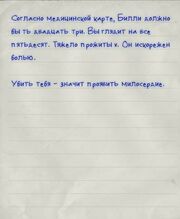 Согласно медицинской карте, Билли должно
быть двадцать три. Выглядит на все
пятьдесят. Тяжело прожитых. Он искорежен
болью.
Убить тебя - значит проявить милосердие.